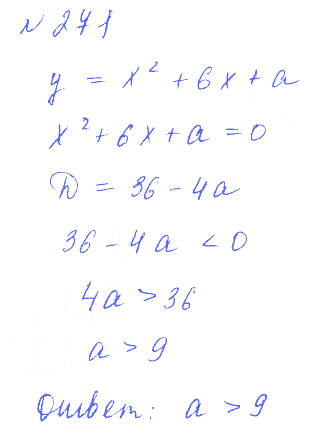 №271
y = x² + 6x + a
x² + 6x + a = 0
D = 36 - 4a
36 - 4a < 0
4a > 36
a > 9
Ответ: a > 9